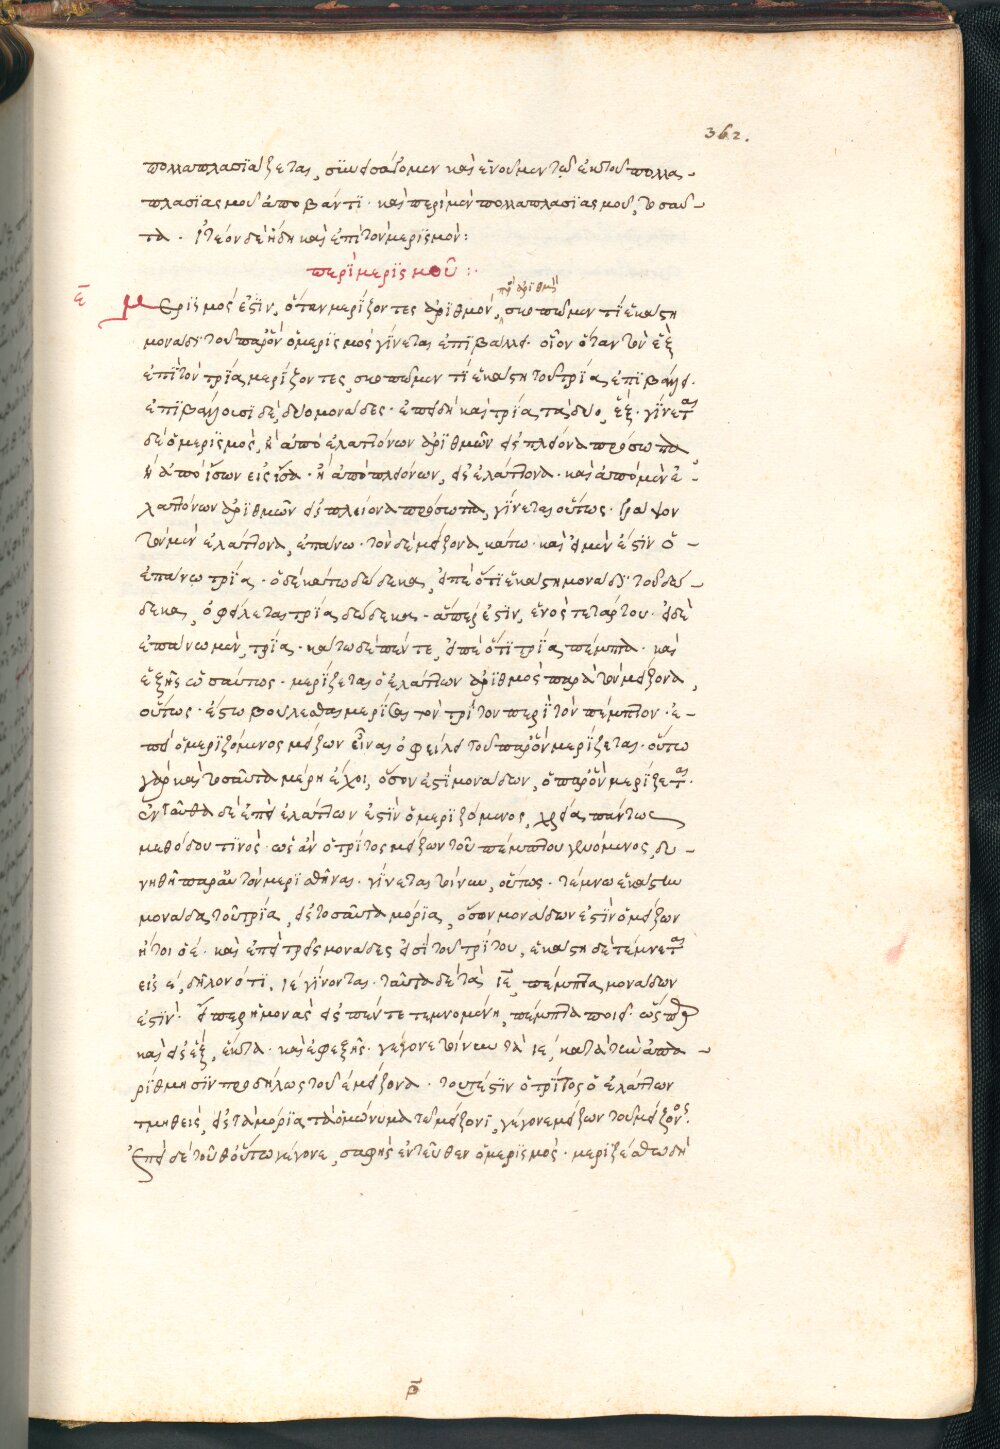 362.
πολλαπλασϊάζεται, συνεισάξομεν καὶ ἑνοῦμεν τῷ ἐκ τοῦ πολλα-
πλασϊασμοῦ ἀποβάντϊ· καὶ περὶ μὲν πολλαπλασϊασμοῦ, τοσαῦ-
τα. ἰτέον δὲ ἤδη καὶ ἐπὶ τὸν μερϊσμόν:
περὶ μερϊσμοῦ:
ε̄ Μερϊσμός ἐστϊν, ὅταν μερίζοντες ἀρϊθμὸν, πρὸς ἀρϊθμὸν σκοπῶμεν τί ἑκάστη
μονάδϊ τοῦ παρ' ὃν ὁ μερϊσμὸς γίνεται ἐπϊβάλλει. οἷον ὅταν τὸν ἓξ
ἐπὶ τὸν τρία μερίζοντες, σκοπῶμεν τί ἑκάστη τοῦ τρία ἐπϊβάλλει.
ἐπϊβάλλουσι δὲ, δύο μονάδες· ἐπειδὴ καὶ τρία τὰ δύο, ἕξ. γίνεται
δὲ ὁ μερϊσμὸς, ἢ ἀπὸ ἐλαττόνων ἀρϊθμῶν εἰς πλείονα πρόσωπα
ἢ ἀπὸ ἴσων εἰς ἴσα· ἢ ἀπὸ πλειόνων, εἰς ἐλάττονα· καὶ ἀπὸ μὲν ἐ-
λαττόνων ἀρϊθμῶν εἰς πλείονα πρόσωπα, γίνεται οὕτως. γράψον
τὸν μὲν ἐλάττονα, ἐπάνω· τὸν δὲ μείζονα, κάτω· καὶ εἰ μέν ἐστιν ὁ-
ἐπάνω τρία· ὁ δὲ κάτω δώδεκα, εἰπὲ ὅτι ἑκάστη μονάδϊ τοῦ δώ-
δεκα, ὀφείλεται τρία δώδεκα· ἅπερ ἐστϊν, ἑνὸς τετάρτου· εἰ δὲ
ἐπάνω μὲν, τρία· κάτω δὲ πέντε, εἰπὲ ὅτι τρία πέμπτα· καὶ
ἑξῆς ὡσαύτως· μερίζεται ὁ ἐλάττων ἀρϊθμὸς παρὰ τὸν μείζονα,
οὕτως· ἔστω βούλεσθαι μερίσαι τὸν τρίτον περὶ τὸν πέμπτον· ἐ-
πεὶ ὁ μεριζόμενος μείζων εἶναι ὀφείλει τοῦ παρ' ὃν μερίζεται· οὕτω
γὰρ καὶ τοσαῦτα μέρη ἔχοι, ὅσον ἐστὶ μονάδων, ὁ παρ' ὃν μερίζεται.
ἐνταῦθα δὲ ἐπεὶ ἐλάττων ἐστὶν ὁ μεριζόμενος, χρεία πάντως
μεθόδου τινὸς· ὡς ἂν ὁ τρίτος μείζων τοῦ πέμπτου γενόμενος, δυ-
νηθῇ παρ' αὐτὸν μερισθῆναι· γίνεται τοίνυν, οὕτως· τέμνω ἑκάστην
μονάδα τοῦ τρία, εἰς τοσαῦτα μόρϊα, ὅσον μονάδων ἐστὶν ὁ μείζων
ἤτοι ὁ έ· καὶ ἐπεὶ τρεῖς μονάδες εἰσὶ τοῦ τρίτου, ἑκάστη δὲ τέμνεται
εἰς έ, δῆλον ὅτϊ, ιέ γίνονται· ταῦτα δὲ τὰ ιε̄, πέμπτα μονάδων
ἐστϊν· εἴπερ ἡ μονὰς εἰς πέντε τεμνομένη, πέμπτα ποιεῖ· ὥσπερ
καὶ εἰς ἓξ, ἕκτα· καὶ ἐφεξῆς· γέγονε τοίνυν τὰ ιέ, κατὰ τὴν ἀπα-
ρίθμησϊν προδήλως τοῦ έ μείζονα· τουτέστϊν ὁ τρίτος ὁ ἐλάττων
τμηθεὶς, εἰς τὰ μόρϊα τὰ ὁμώνυμα τῷ μείζονϊ, γέγονε μείζων τοῦ μείζονος.
Ἐπεὶ δὲ τοῦθ' οὕτω γέγονε, σαφὴς ἐντεῦθεν ὁ μερϊσμός· μεριζέσθω δὴ
ρ̄